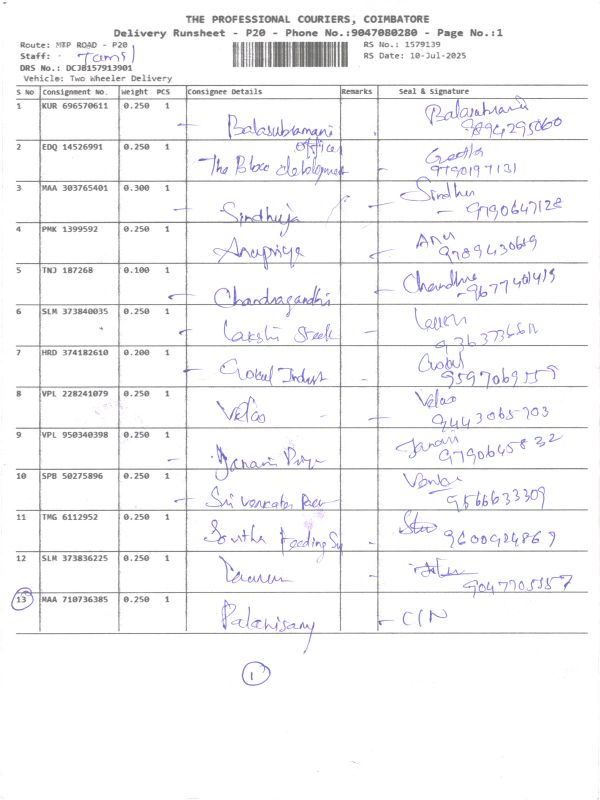 THE PROFESSIONAL COURIERS, COIMBATORE
Delivery Runsheet - P20 - Phone No.:9047080280 - Page No.:1
Route: MTP ROAD - P20
RS No.: 1579139
Staff:
RS Date: 10-Jul-2025
DRS No.: DCJB157913901
Vehicle: Two Wheeler Delivery
S No Consignment No. Weight PCS Consignee Details Remarks Seal & Signature
1 KUR 696570611 0.250 1
Balasubramani
9894295060
2 EDQ 14526991 0.250 1 office
The Block development
9790197131
3 MAA 303765401 0.300 1 Sindhu
Sindhuja 9790647128
4 PMK 1399592 0.250 1 Anu
Anupriya 9789430619
5 TNJ 187268 0.100 1
Chandragandhi 9677401419
6 SLM 373840035 0.250 1
7 HRD 374182610 0.200 1 Gokul
Gokul Indust
8 VPL 228241079 0.250 1 Velao
Velao 9443065703
9 VPL 950340398 0.250 1 Janani
Janani 9790645832
10 SPB 50275896 0.250 1
Sri venkates 9566633309
11 TMG 6112952 0.250 1
9600924869
12 SLM 373836225 0.250 1
9047705557
13 MAA 710736385 0.250 1
Palanisamy
1